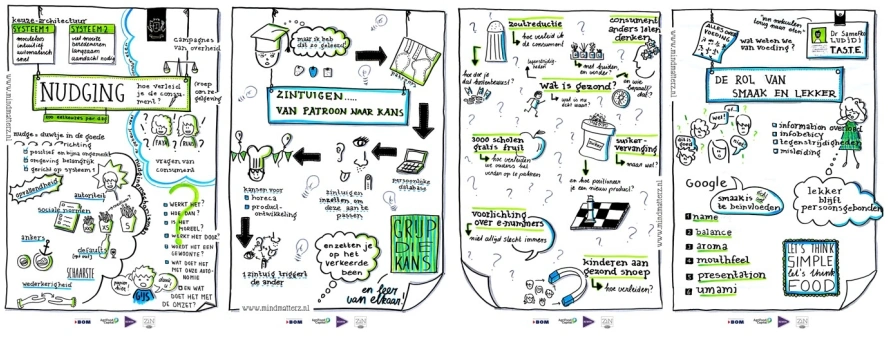 keuze-architectuur
SYSTEEM 1
moeiteloos
intuïtief
automatisch
snel
SYSTEEM 2
veel moeite
beredeneren
langzaam
aandacht nodig
campagnes
van overheid
NUDGING
hoe verleid
je de consu-
ment?
200 eetkeuzes per dag
(roep
om re-
gelgeving
nudge = duwtje in de goede
richting
positief en bijna ongemerkt
omgeving belangrijk
gericht op systeem 1
vragen van
consument
opvallendheid
autoriteit
sociale normen
XS
S
ankers
defaults
SCHAARSTE
wederkerigheid
WERKT HET?
HOE DAN?
IS HET
MOREEL?
WERKT HET DOOR?
WORDT HET EEN
GEWOONTE?
WAT DOET HET
MET ONZE AUTO-
NOMIE
EN WAT
DOET HET MET
DE OMZET?
www.mindmatterz.nl
maar ik heb
dat zo geleerd!
ZINTUIGEN.....
VAN PATROON NAAR KANS
persoonlijke
database
kansen voor
horeca
product-
ontwikkeling
zintuigen
inzetten om
deze aan te
passen
1 zintuig triggert
de ander
en zetten je
op het
verkeerde
been
GRIJP
DIE
KANS
en leer
van elkaar!
www.mindmatterz.nl
zoutreductie
hoe verleid ik
de consument?
consument
anders leren
denken
met kruiden
en verder?
hoe doe je
dat
wat is gezond?
wat is nu
echt waar?
en wie
bepaalt
dat?
3000 scholen
gratis fruit
hoe verleiden
we ouders het
verder op te pakken
suiker-
vervanging
maar wel?
en hoe positioneer
je een nieuw product?
voorlichting
over e-nummers
niet altijd slecht immers
kinderen aan
gezond snoep
hoe verleiden?
www.mindmatterz.nl
ALLES OVER
VOEDING
"van moleculen
terug naar eten"
wat weten we
van voeding?
Dr
T.A.S.T.E.
DE ROL VAN
SMAAK EN LEKKER
wel!
niet!
information overload
infobecity
tegenstrijdigheden
misleiding
Google
smaak is
te beïnvloeden
lekker
blijft
persoonsgebonden
1 name
2 balance
3 aroma
4 mouthfeel
5 presentation
6 umami
LET'S THINK
SIMPLE
let's think
FOOD
www.mindmatterz.nl
BOM
BOM
BOM
BOM